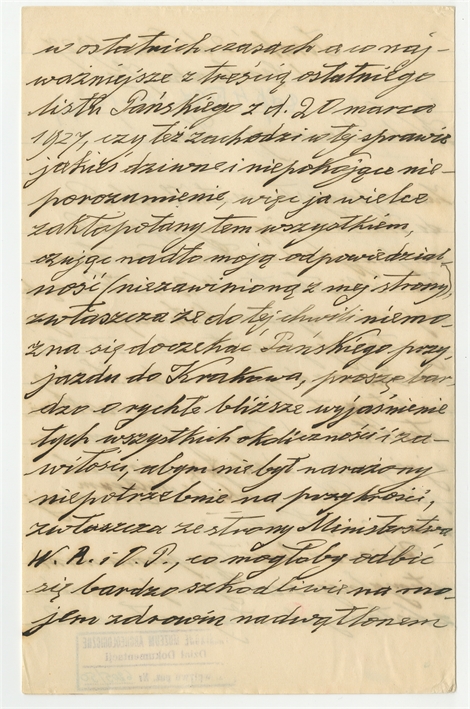 w ostatnich czasach a co naj-
ważniejsze z treścią ostatniego
listu Pańskiego z d. 20 marca
1927, czy też zachodzi w tej sprawie
jakieś dziwne i niepokojące nie-
porozumienie, więc ja wielce
zakłopotany tem wszystkiem,
czując nadto moją odpowiedzial-
ność (niezawinioną z mej strony),
zwłaszcza że do tej chwili niemo-
żna się doczekać Pańskiego przy-
jazdu do Krakowa, proszę bar-
dzo o rychłe bliższe wyjaśnienie
tych wszystkich okoliczności i za-
wiłości, abym nie był narażony
niepotrzebnie na przykrości,
zwłaszcza ze strony Ministerstwa
W. R. i O. P., co mogłoby odbić
się bardzo szkodliwie na mo-
jem zdrowiu nadwątlonem